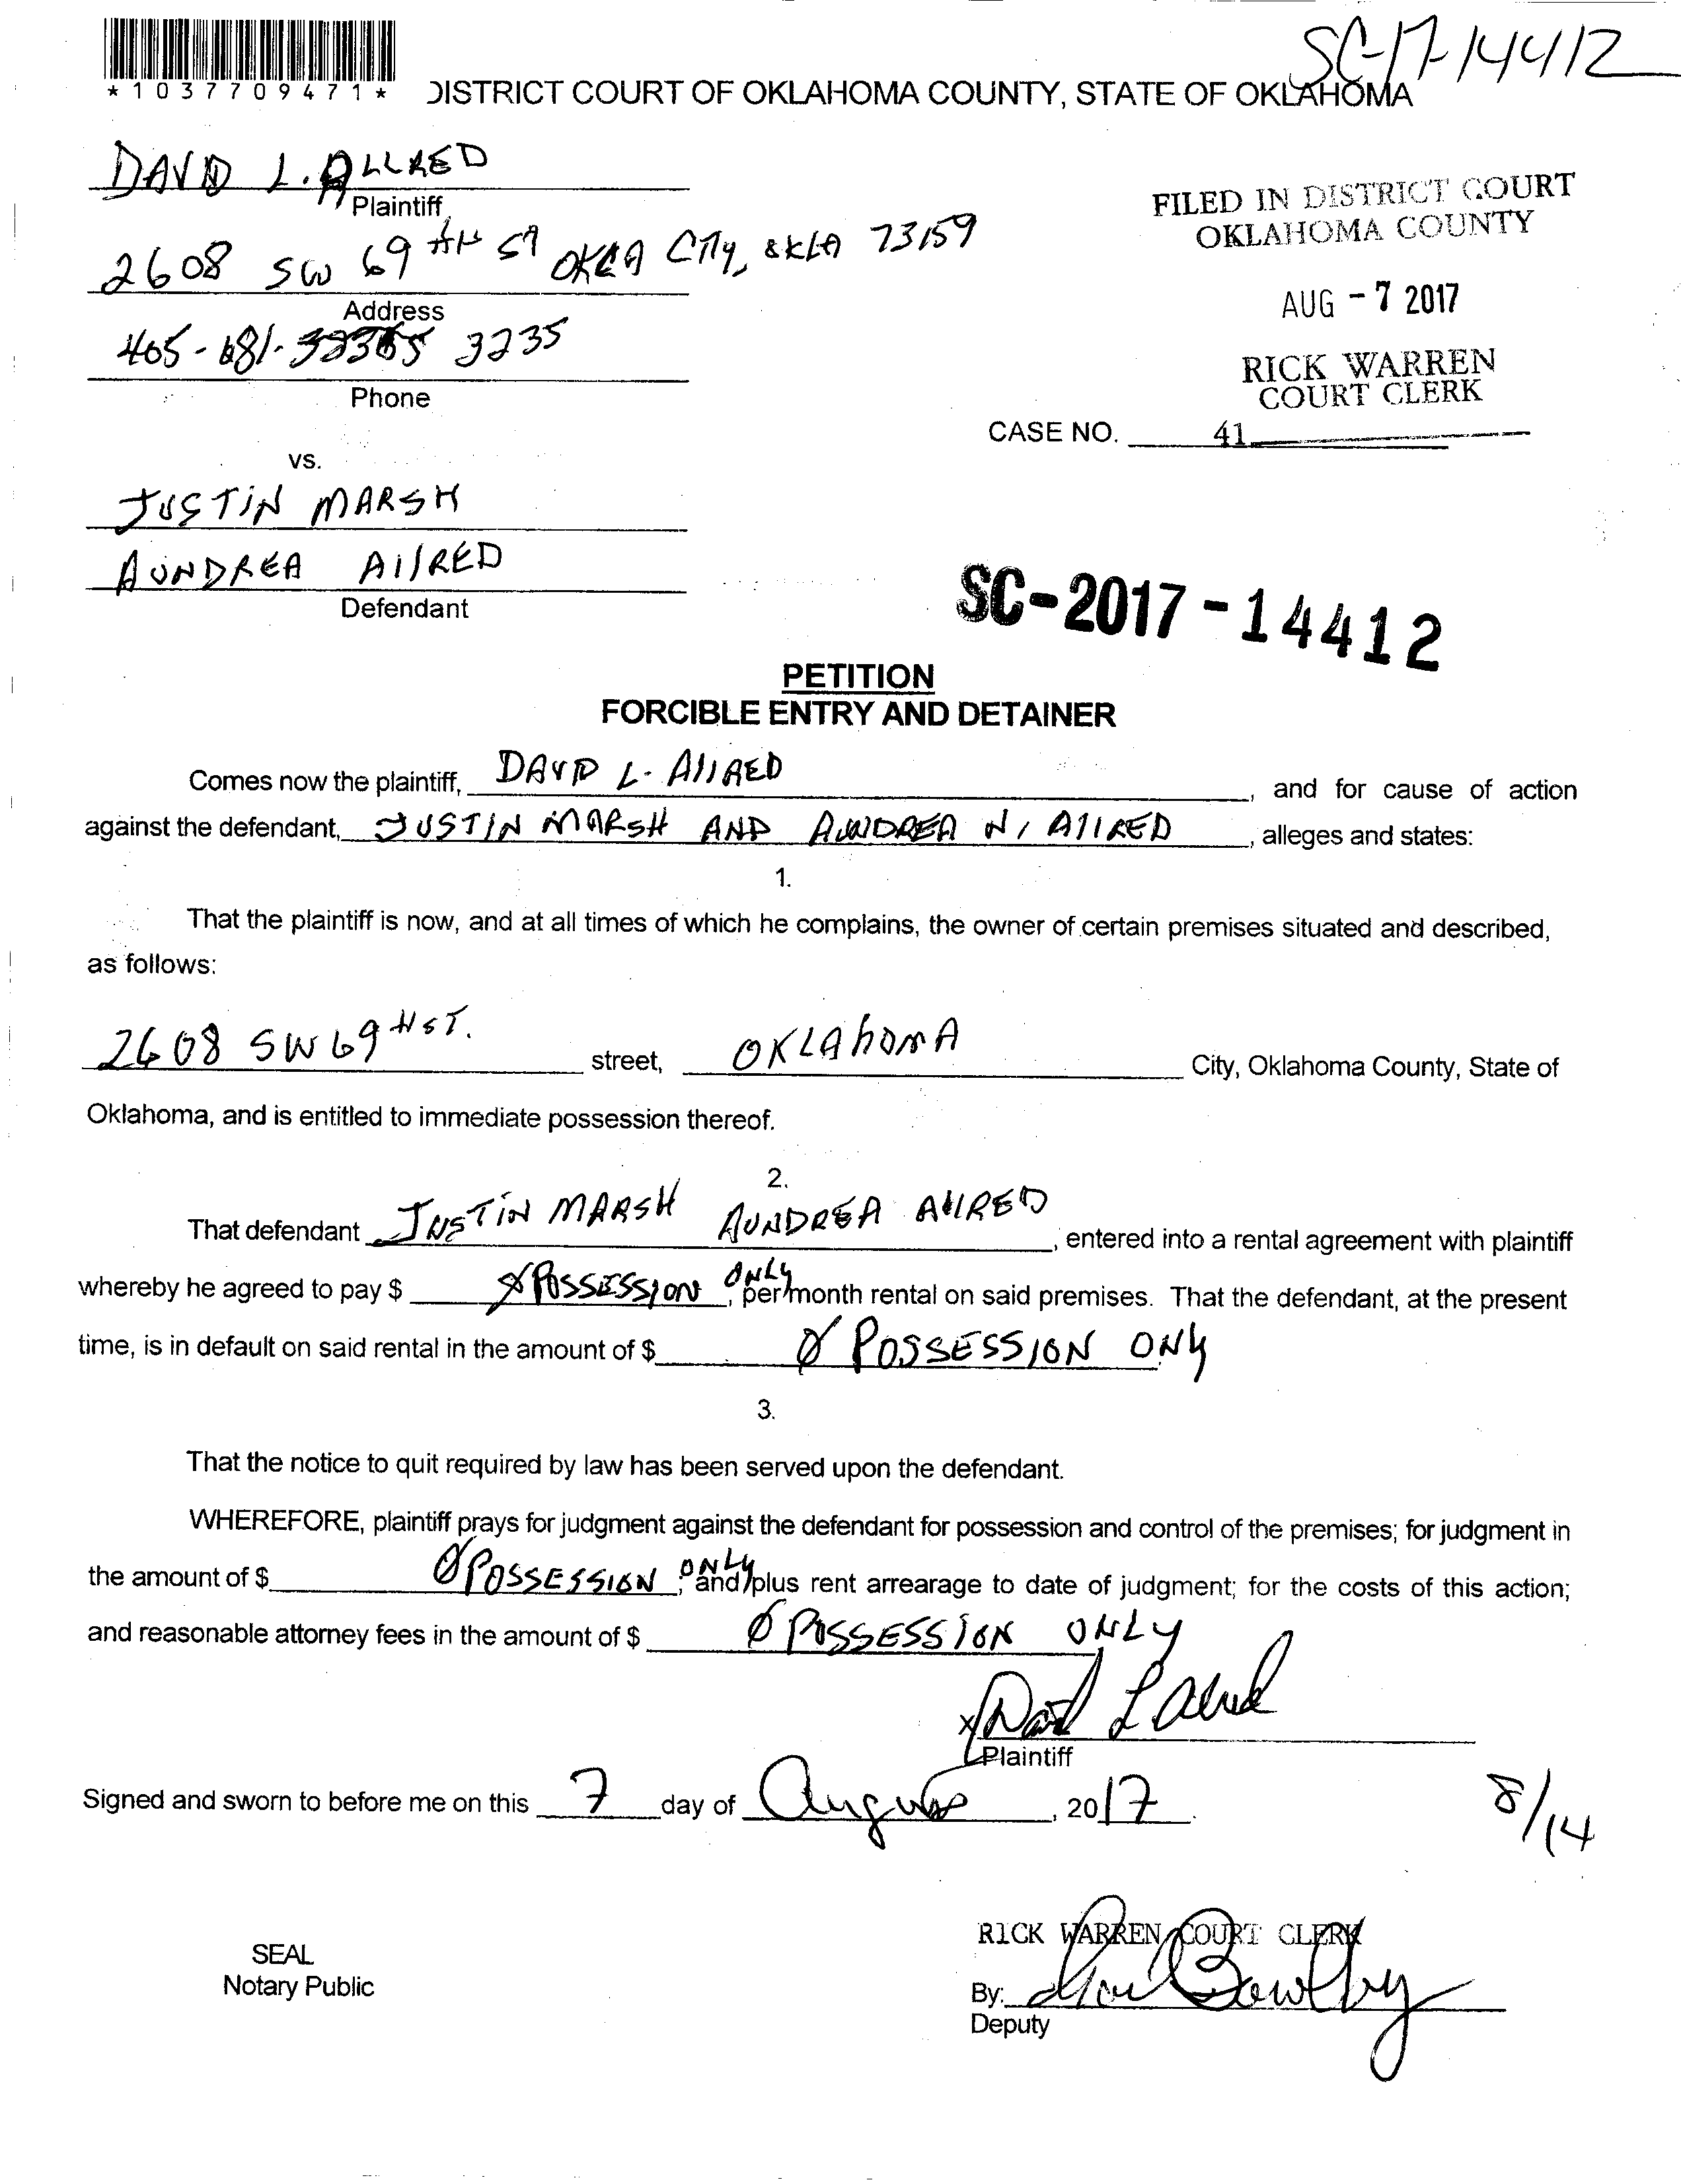 SC-17-14412
*1037709471*
DISTRICT COURT OF OKLAHOMA COUNTY, STATE OF OKLAHOMA
DAVID L. ALLRED
Plaintiff
2608 SW 69TH ST OKLA CITy, OKLA 73159
Address
405-681- 3235
Phone
FILED IN DISTRICT COURT
OKLAHOMA COUNTY
AUG - 7 2017
RICK WARREN
COURT CLERK
CASE NO. 41
vs.
JUSTIN MARSH
AUNDREA AllRED
Defendant
SC-2017-14412
PETITION
FORCIBLE ENTRY AND DETAINER
Comes now the plaintiff, DAVID L. AllRED, and for cause of action
against the defendant, JUSTIN MARSH AND AUNDREA N. AllRED, alleges and states:
1.
That the plaintiff is now, and at all times of which he complains, the owner of certain premises situated and described,
as follows:
2608 SW 69TH ST. street, OKLAhOMA City, Oklahoma County, State of
Oklahoma, and is entitled to immediate possession thereof.
2.
That defendant JUSTIN MARSH AUNDREA AllRED, entered into a rental agreement with plaintiff
whereby he agreed to pay $ Ø POSSESSION ONLY, per month rental on said premises. That the defendant, at the present
time, is in default on said rental in the amount of $ Ø POSSESSION ONLY
3.
That the notice to quit required by law has been served upon the defendant.
WHEREFORE, plaintiff prays for judgment against the defendant for possession and control of the premises; for judgment in
the amount of $ Ø POSSESSION ONLY, and plus rent arrearage to date of judgment; for the costs of this action;
and reasonable attorney fees in the amount of $ Ø POSSESSION ONLY
x David L Allred
Plaintiff
Signed and sworn to before me on this 7 day of August, 2017
8/14
SEAL
Notary Public
RICK WARREN COURT CLERK
By: Bowlby
Deputy